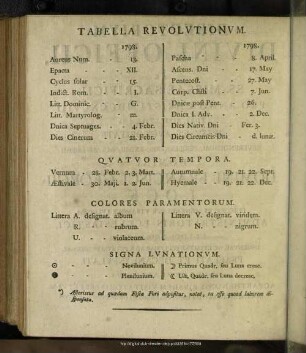 TABELLA REVOLVTIONVM.
1798.
Aureus Num. - - 13.
Epacta - - XII.
Cyclus solar - - 15.
Indict. Rom. - - I.
Litt. Dominic. - G.
Litt. Martyrolog. - m.
Dnica Septuages. - 4. Febr.
Dies Cinerum - - 21. Febr.
1798.
Pascha - - 8. April.
Ascens. Dni - - 17. May
Pentecost. - - 27. May
Corp. Chsti - - 7. Jun.
Dnicæ post Pent. - 26.
Dnica I. Adv. - - 2. Dec.
Dies Nativ. Dni - Fer. 3.
Dies Circumcis Dni - d. lunæ.
QVATVOR TEMPORA.
Vernum - 28. Febr. 2. 3. Mart.
Æstivale - 30. Maji. 1. 2. Jun.
Autumnale - 19. 21. 22. Sept.
Hyemale - 19. 21. 22. Dec.
COLORES PARAMENTORUM.
Littera A. designat. album
R. - rubrum.
U. - violaceum.
Littera V. designat. viridem.
N. - nigrum.
SIGNA LVNATIONVM.
Novilunium.
Plenilunium.
Primus Quadr. seu Luna cresc.
Ult. Quadr. seu Luna decresc.
*) Asteriscus ad quædam Festa Fori adpositus, notat, eo esse quoad laborem dispensata.